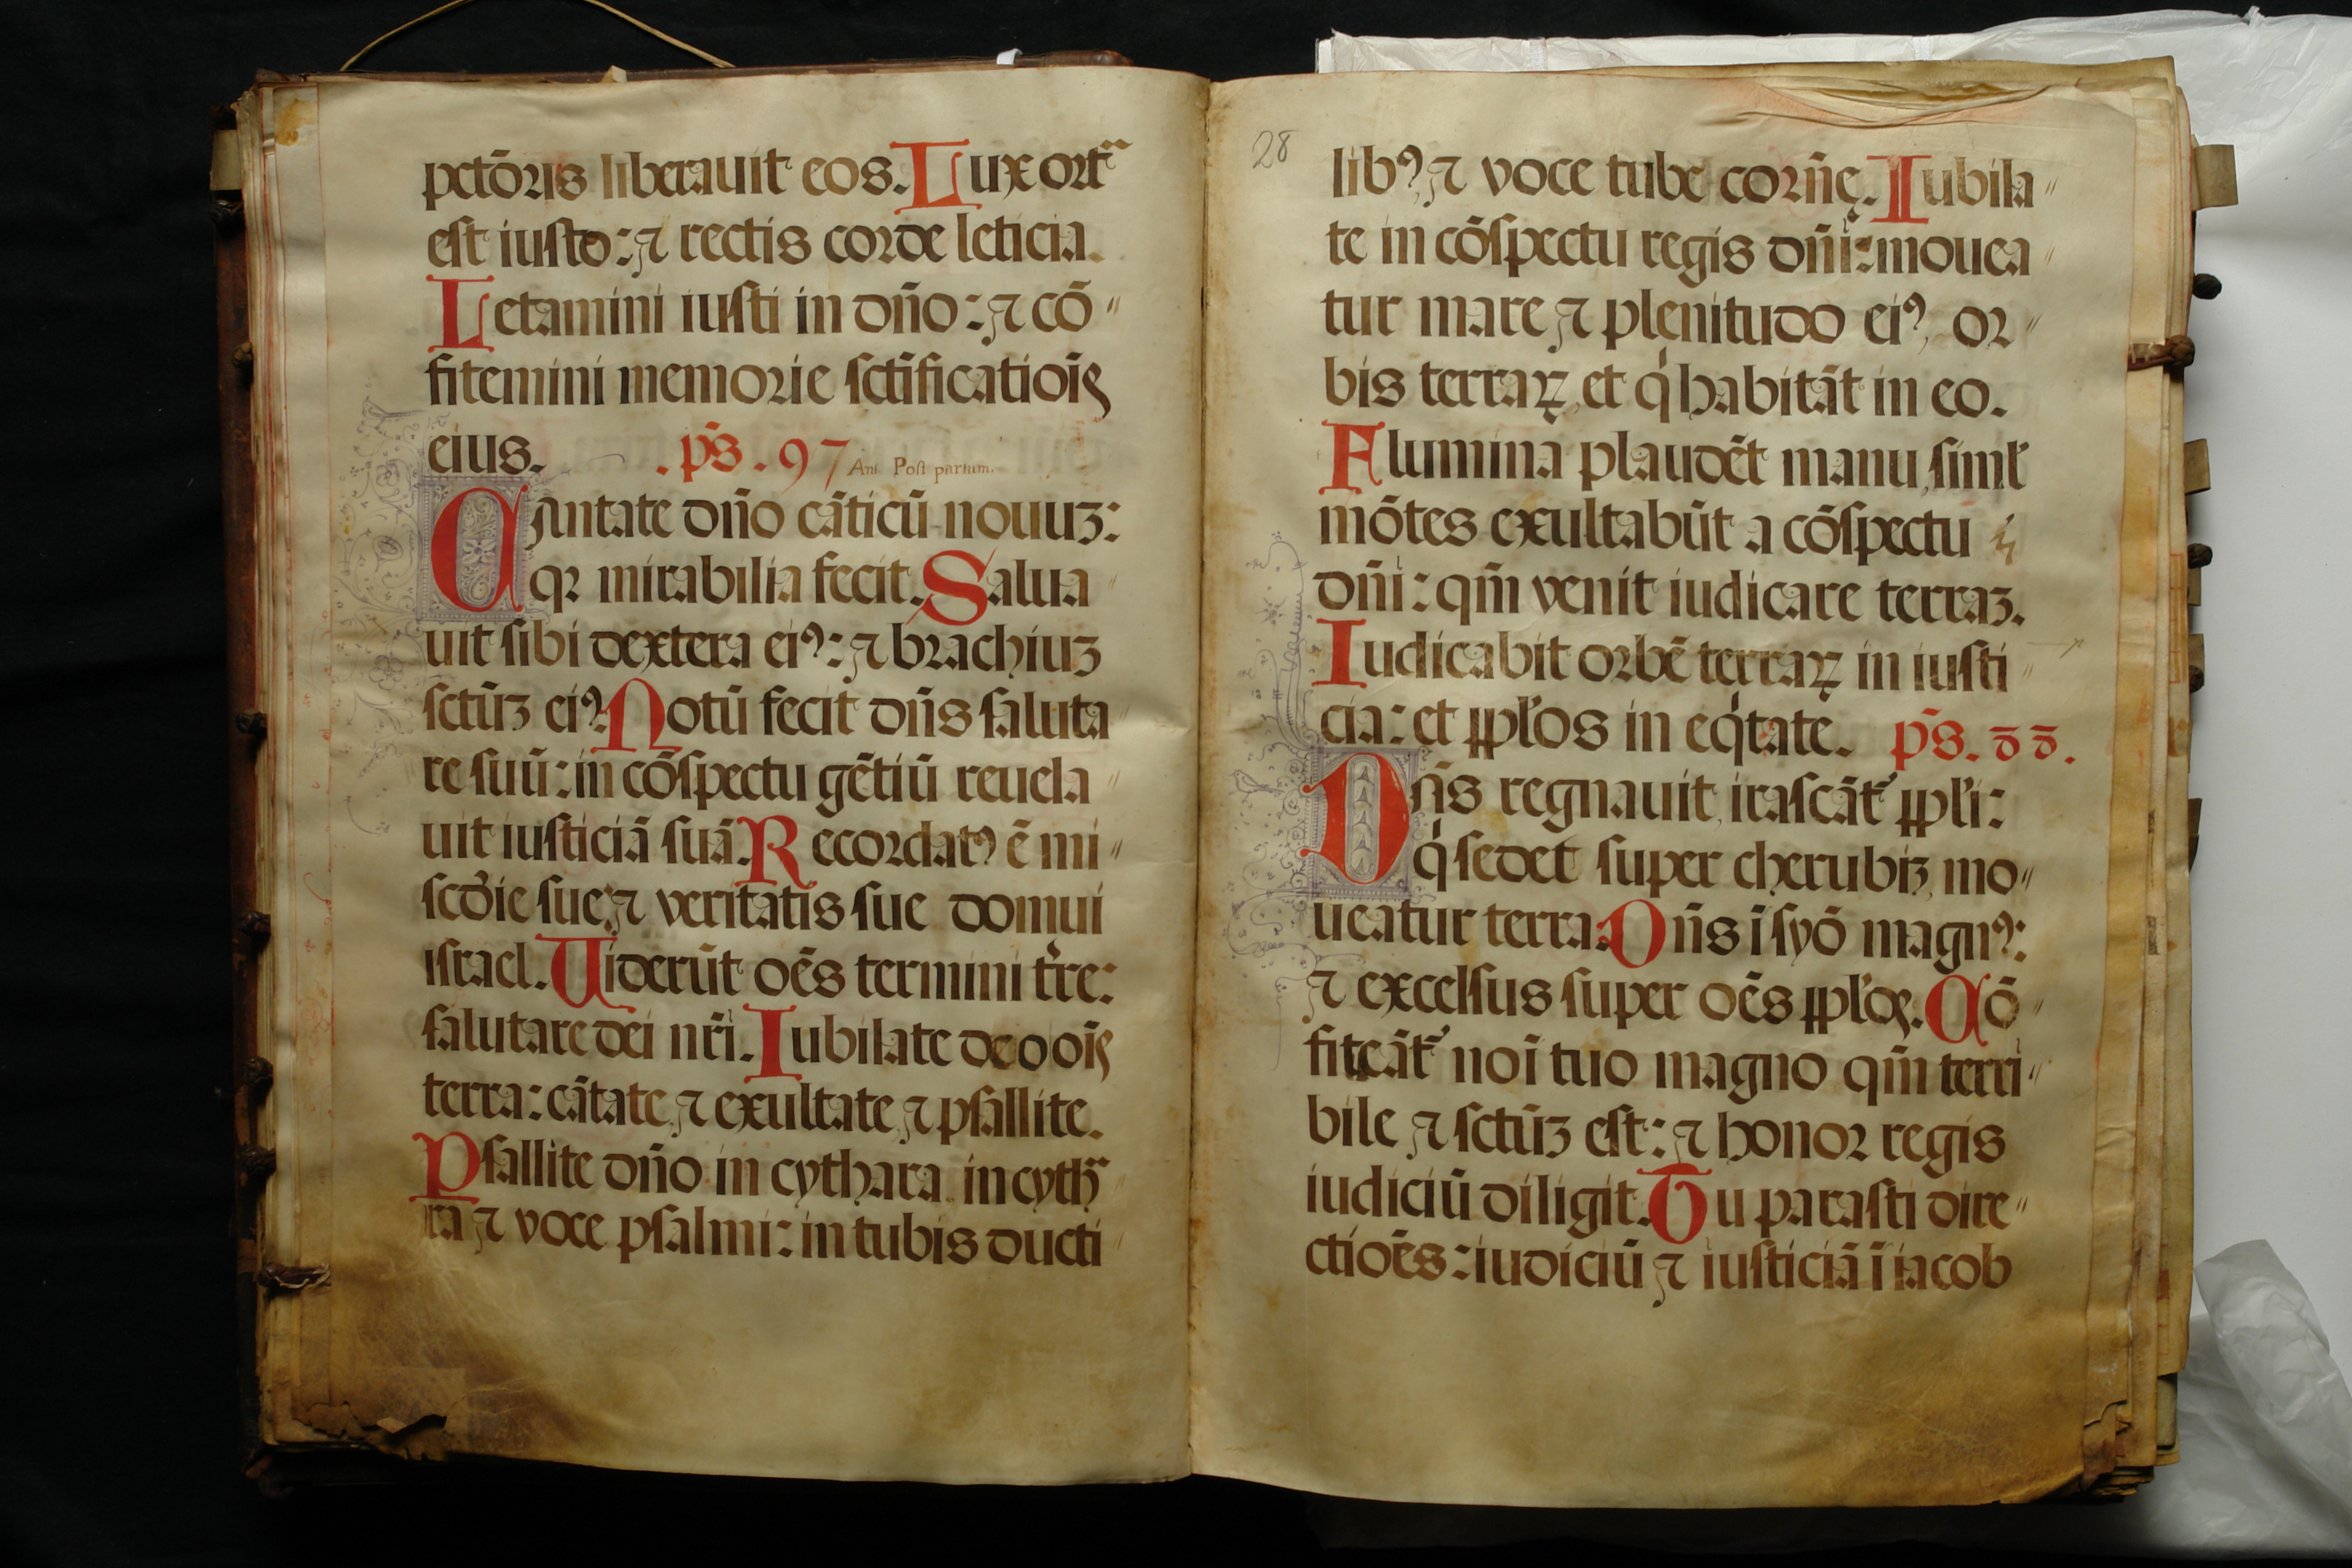 pctōris liberauit eos. Lux ort
est iusto: ⁊ rectis corde leticia.
Letamini iusti in dn̄o: ⁊ cō〃
fitemini memorie sctīficatiōis
eius. .ps̄. 97 Ant. Post partum.
Cantate dn̄o cāticū nouuꝫ:
qꝛ mirabilia fecit. Salua〃
uit sibi dextera eiꝰ: ⁊ brachiuꝫ
sctūꝫ eiꝰ. Notū fecit dn̄s saluta〃
re suū: in cōspectu gētiū reuela〃
uit iusticiā suā. Recordatꝰ ē mi〃
scd̄ie sue: ⁊ veritatis sue domui
israel. Uiderūt oēs termini tr̄re:
salutare dei nr̄i. Iubilate deo oīs
terra: cātate, ⁊ exultate, ⁊ psallite.
Psallite dn̄o in cythara in cyth
ra ⁊ voce psalmi: in tubis ducti〃
28
libꝰ, ⁊ voce tube corn̄ę. Iubila〃
te in cōspectu regis dn̄i: mouea〃
tur mare ⁊ plenitudo eiꝰ, or〃
bis terraꝝ, et q̇ habitāt in eo.
Flumina plaudēt manu, siml̄
mōtes exultabūt a cōspectu
dn̄i: qm̄ venit iudicare terraꝫ.
Iudicabit orbē terraꝝ in iusti〃
cia: et ꝓpl̄os in eq̇tate. ps̄. 98.
Dn̄s regnauit, irascāt᷑ ꝓpl̄i:
q̇ sedet super cherubiꝫ, mo〃
ueatur terra. Dn̄s ī syō magnꝰ:
⁊ excelsus super oēs ꝓpl̄os. Cō〃
fiteāt᷑ noī tuo magno qm̄ terri〃
bile ⁊ sctūꝫ est: ⁊ honor regis
iudiciū diligit. Tu parasti dire〃
ctiōēs: iudiciū ⁊ iusticiā ī iacob